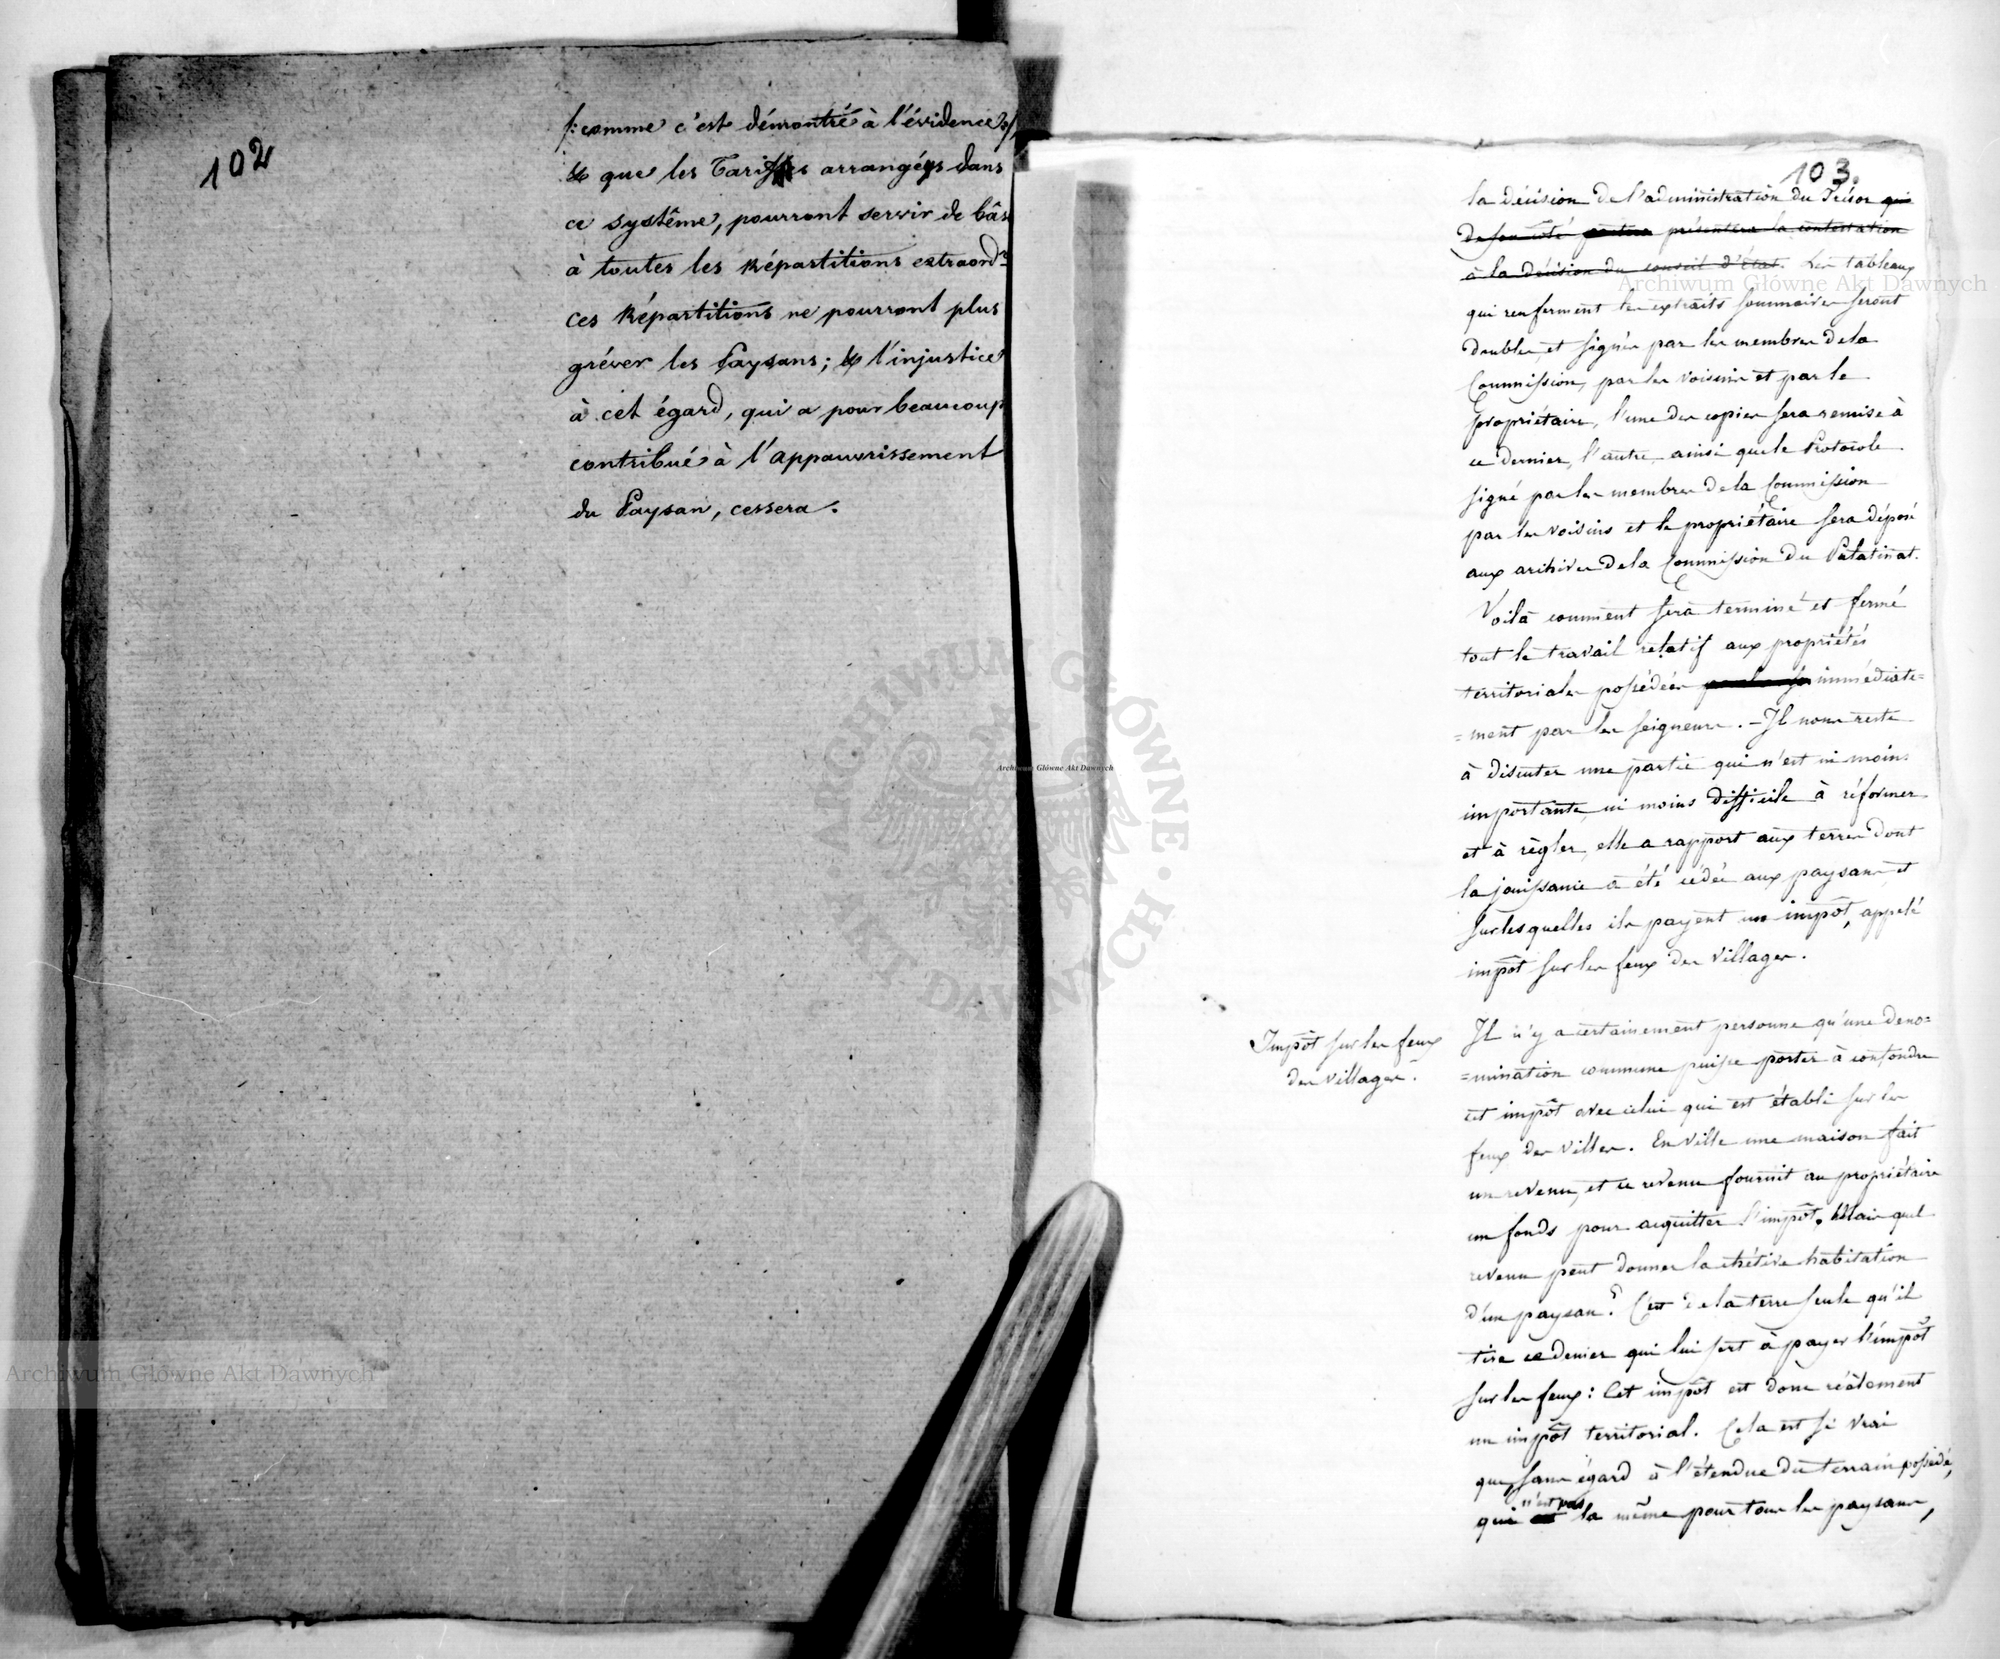 102
/: comme c'est démontré à l'évidence :/
& que les Tariffes arrangées dans
ce systême, pourront servir de bâs
à toutes les Répartitions extraord.res
ces Répartitions ne pourront plus
gréver les Paysans; & l'injustice
à cet égard, qui a pour beaucoup
contribué à l'appauvrissement
du Paysan, cessera.
103.
la décision de l'administration du Trésor qui
de son côté présentera la contestation
à la décision du conseil d'état. Les tableaux
qui renferment les extraits sommaires seront
doubles, et signés par les membres de la
Commission, par les voisins et par le
propriétaire, l'une des copies sera remise à
ce dernier, l'autre ainsi que le Protocole
signé par les membres de la Commission
par les voisins et le propriétaire sera déposé
aux archives de la Commission du Palatinat.
Voilà comment sera terminé et fermé
tout le travail relatif aux propriétés
territoriales possédées immédiate=
=ment par les seigneurs. – Il nous reste
à discuter une partie qui n'est ni moins
importante ni moins difficile à réformer
et à règler, elle a rapport aux terres dont
la jouissance a été cédée aux paysans et
sur lesquelles ils payent un impôt, appelé
impôt sur les feux des villages.
Impôt sur les feux
des villages.
Il n'y a certainement personne qu'une déno=
=mination commune puisse porter à confondre
cet impôt avec celui qui est établi sur les
feux des villes. En ville une maison fait
un revenu, et ce revenu fournit au propriétaire
un fonds pour acquitter l'impôt. Mais quel
revenu peut donner la chétive habitation
d'un paysan? C'est de la terre seule qu'il
tire ce denier qui lui sert à payer l'impôt
sur les feux: Cet impôt est donc réélement
un impôt territorial. Cela est si vrai
que sans égard à l'étendue du terrain possédé,
qui n'est pas la même pour tous les paysans,
Archiwum Główne Akt Dawnych
Archiwum Główne Akt Dawnych
Archiwum Główne Akt Dawnych
ARCHIWUM GŁÓWNE AKT DAWNYCH